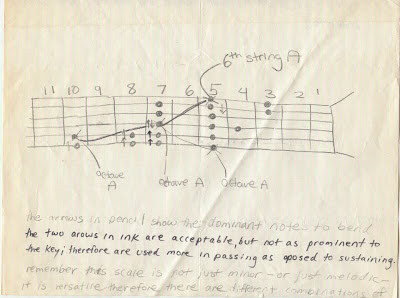 6th string A
11 10 9 8 7 6 5 4 3 2 1
octave A
octave A
octave A
the arrows in pencil show the dominant notes to bend
the two arows in ink are acceptable, but not as prominent to
the key; therefore are used more in passing as oposed to sustaining.
remember this scale is not just minor - or just melodic -
it is versatile therefore there are different combinations of